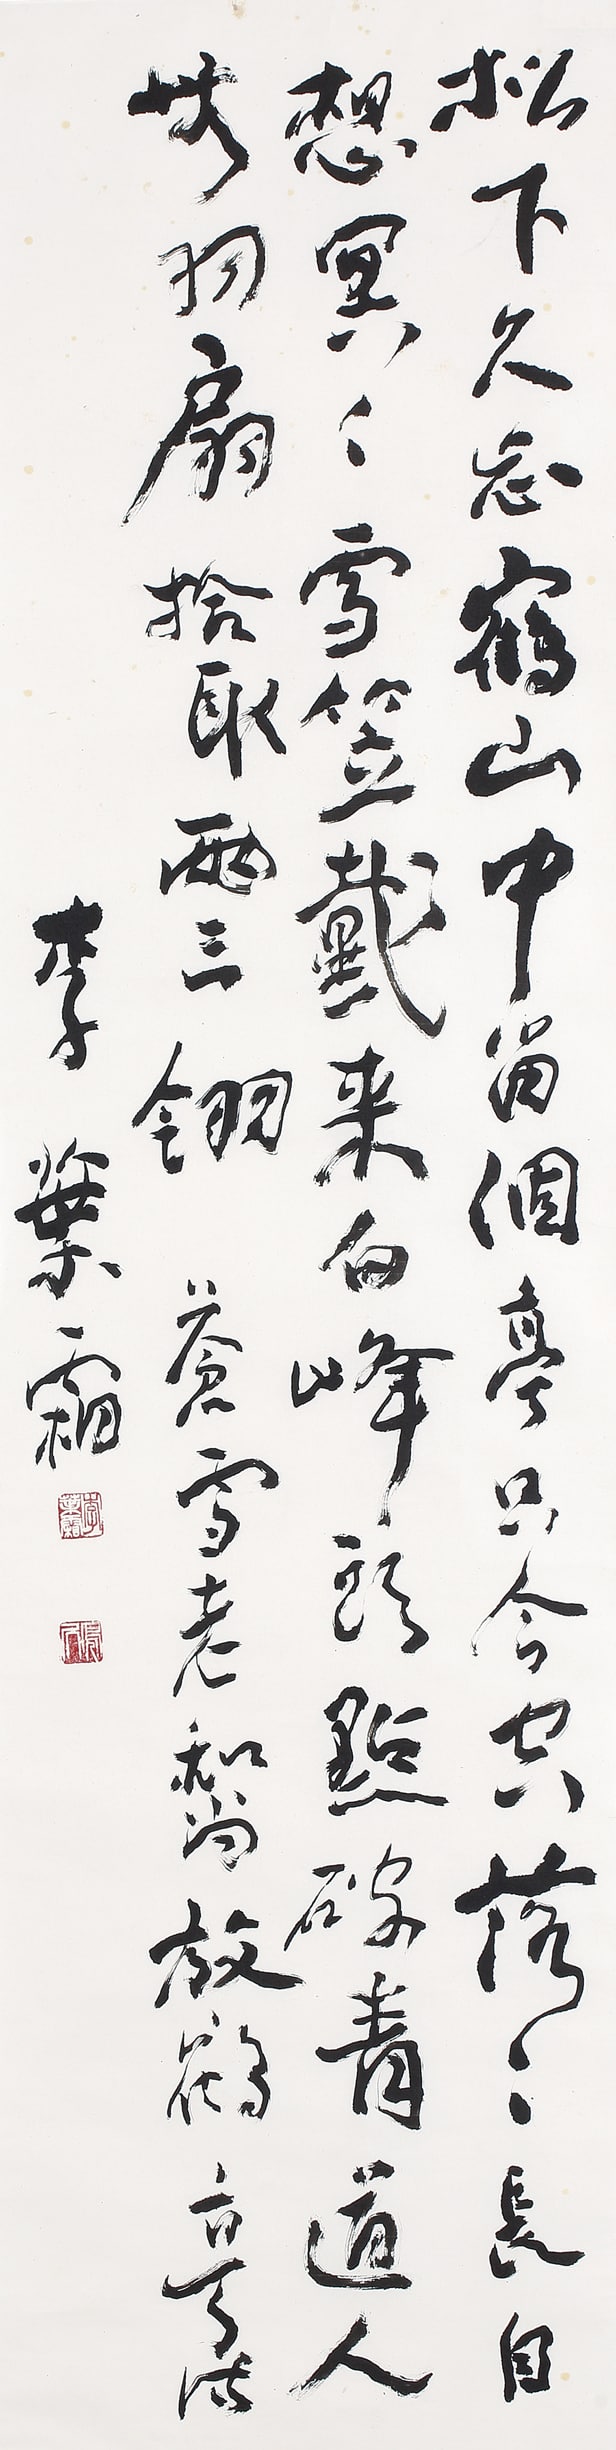 松下久忘鶴山中留個亭只今空落々長自
想冥々雪笠戴来白峰頭點破青道人
無羽扇拾取兩三翎 蒼雪老和尚放鶴亭詩
李葉霜
李葉霜